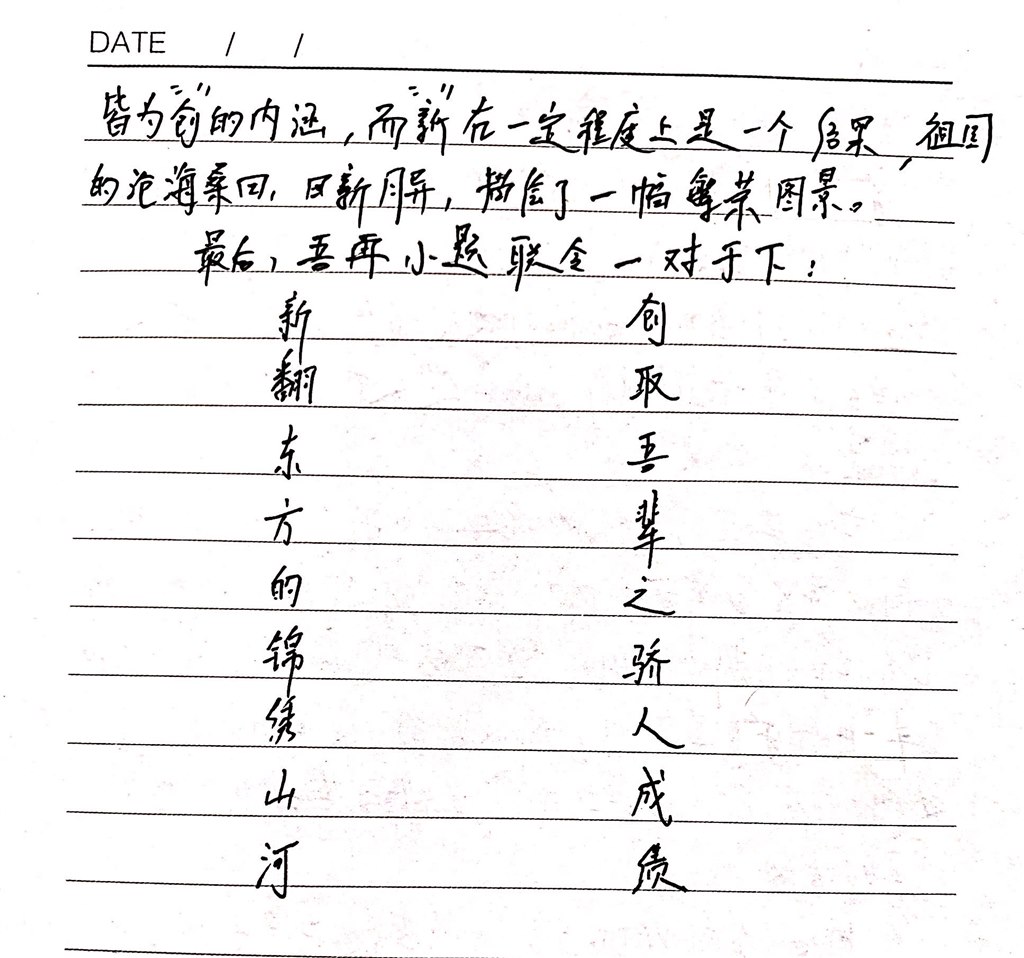 DATE / /
皆为“创”的内涵，而“新”在一定程度上是一个结果，祖国
的沧海桑田，日新月异，描绘了一幅繁荣图景。
最后，吾再小题联一对于下：
创取吾辈之骄人成绩
新翻东方的锦绣山河